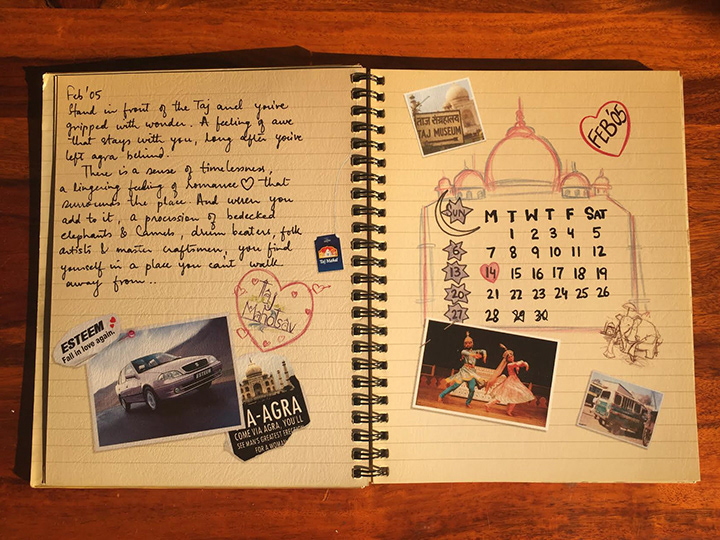 Feb'05
Stand in front of the Taj and you're
gripped with wonder. A feeling of awe
that stays with you, long after you've
left agra behind.
There is a sense of timelessness,
a lingering feeling of romance ♡ that
surrounds the place. And when you
add to it, a procession of bedecked
elephants & Camels, drum beaters, folk
artists & master craftsmen, you find
yourself in a place you can't walk
away from..
Taj Mahal
Taj
Mahotsav
ESTEEM
Fall in love again.
ESTEEM
A-AGRA
COME VIA AGRA, YOU'LL
SEE MAN'S GREATEST
FOR A WOMAN
ताज संग्रहालय
TAJ MUSEUM
FEB'05
SUN M T W T F SAT
1 2 3 4 5
6 7 8 9 10 11 12
13 14 15 16 17 18 19
20 21 22 23 24 25 26
27 28 29 30